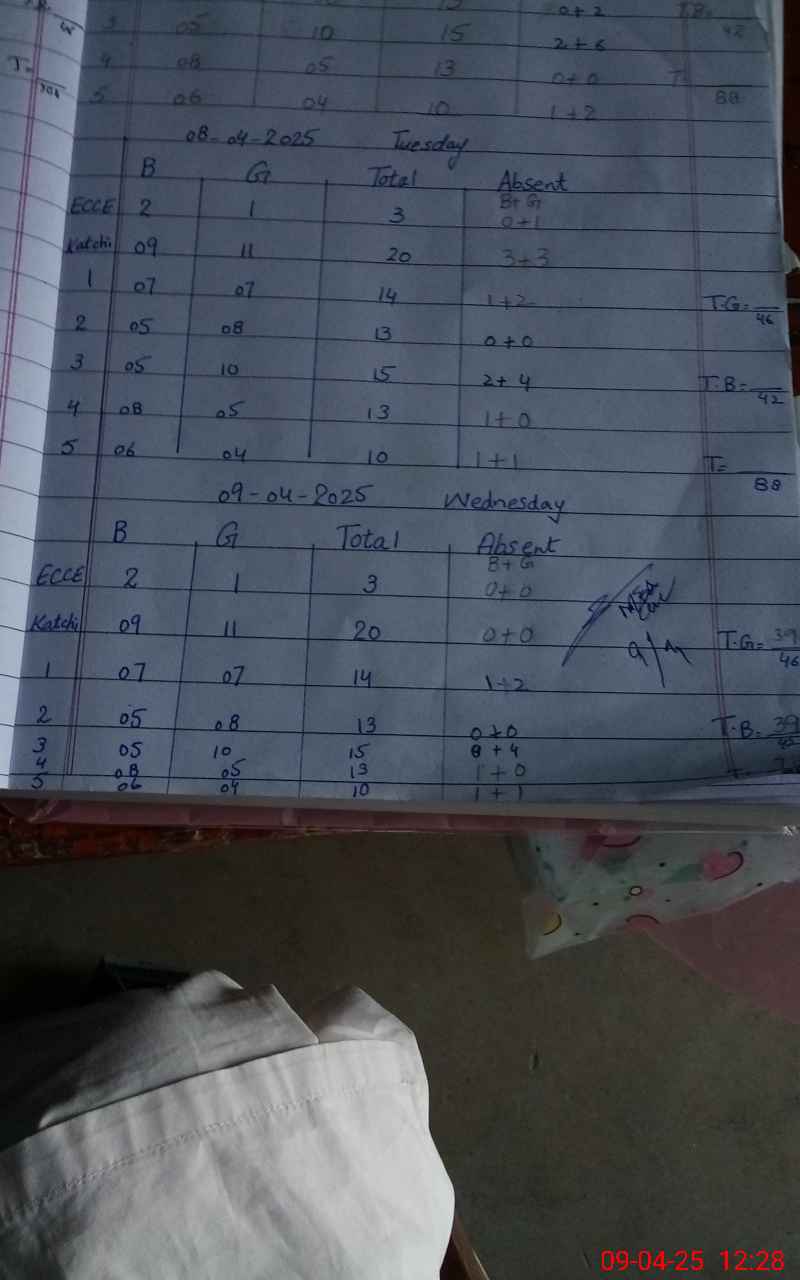 0+2 T.B= 42
3 05 10 15 2+6
T= 4 08 05 13 0+0 T=
5 06 04 10 1+2 88
08-04-2025 Tuesday
B G Total Absent
B+G
ECCE 2 1 3 0+1
Katchi 09 11 20 3+3
1 07 07 14 1+2 T.G= /46
2 05 08 13 0+0
3 05 10 15 2+4 T.B= /42
4 08 05 13 1+0
5 06 04 10 1+1 T= /88
09-04-2025 Wednesday
B G Total Absent
B+G
ECCE 2 1 3 0+0
Katchi 09 11 20 0+0 T.G= 39/46
1 07 07 14 1+2
2 05 08 13 0+0 T.B= 39/42
3 05 10 15 0+4
4 08 05 13 1+0
5 06 04 10 1+1
09-04-25 12:28